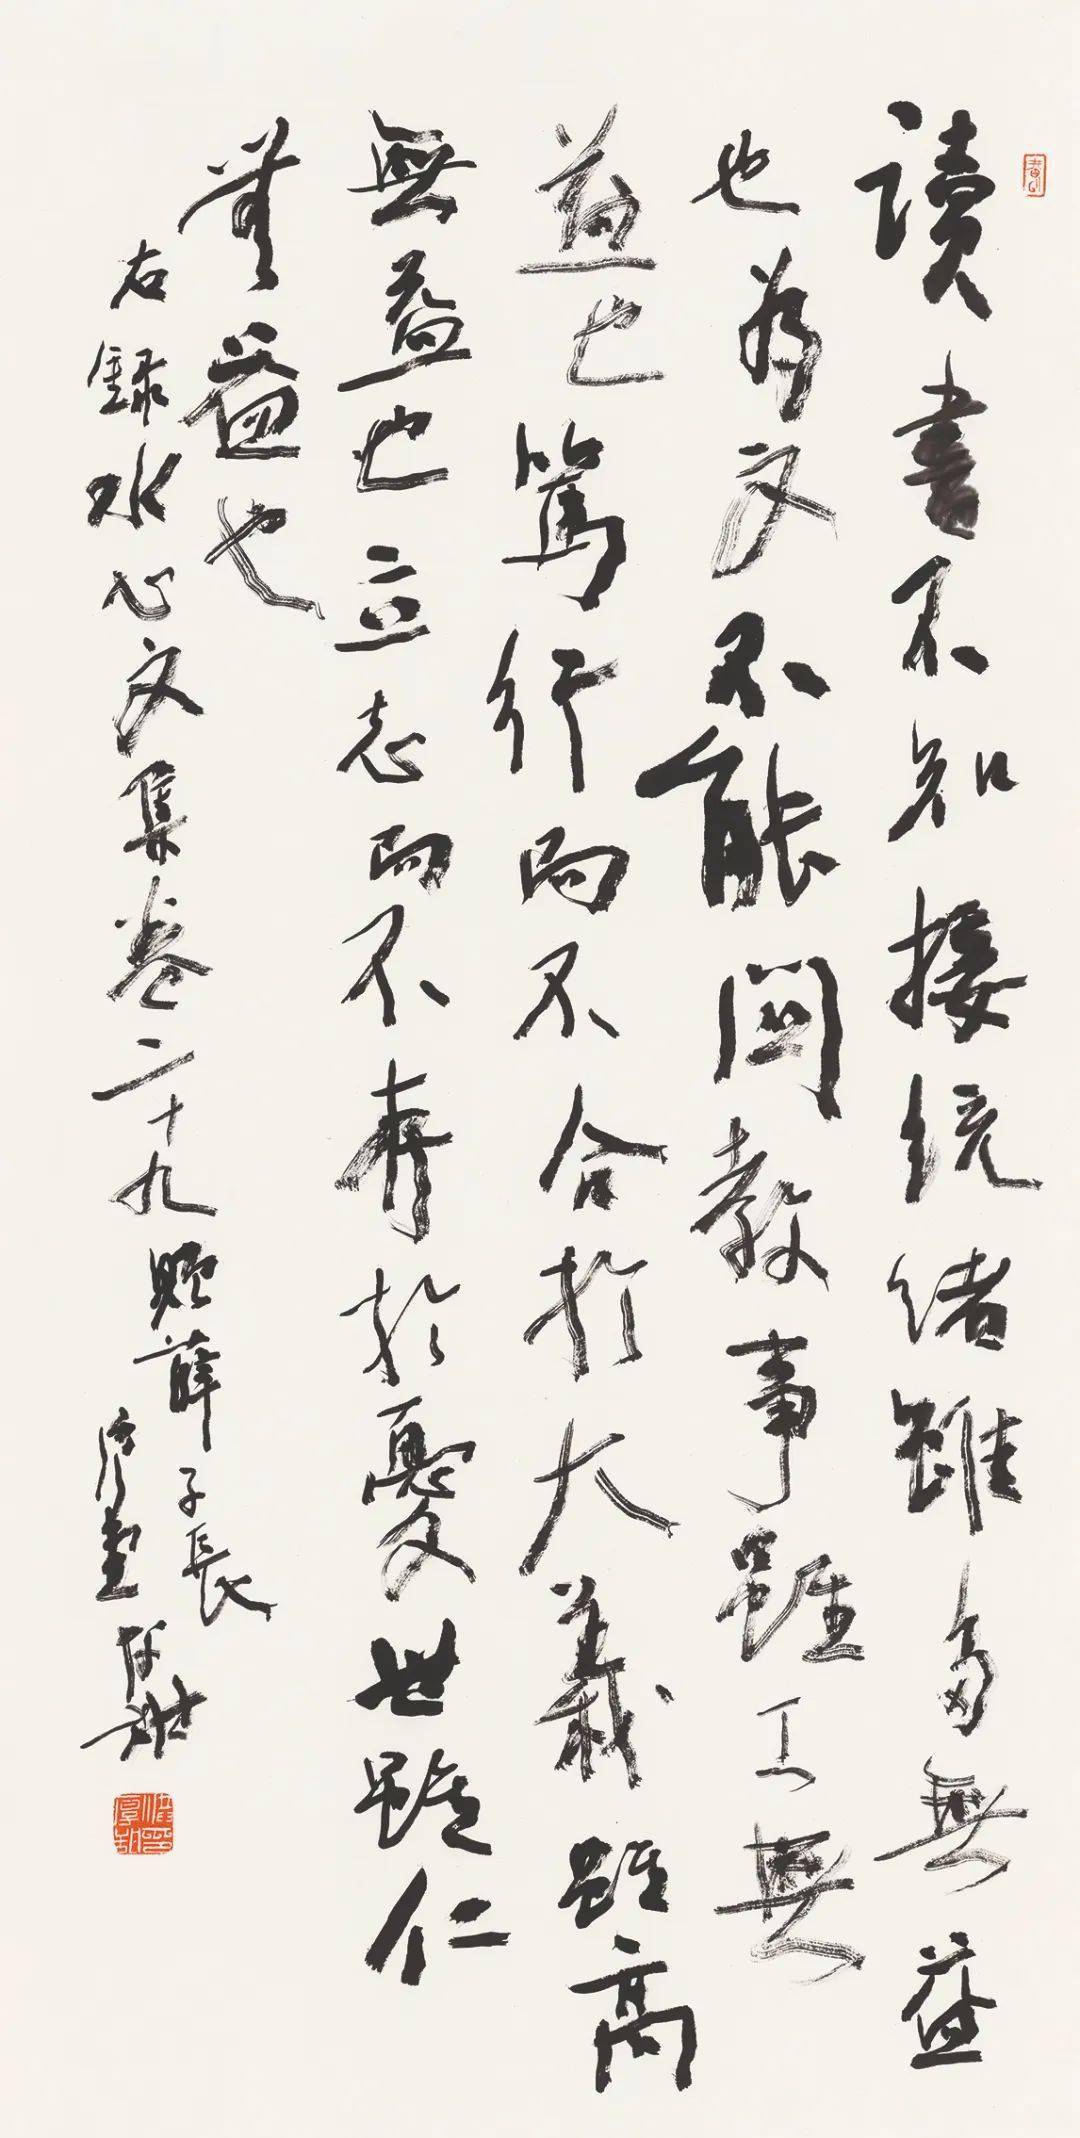 讀書不知接統緒雖多無益
也為文不能關教事雖工無
益也篤行而不合於大義雖高
無益也立志而不存於憂世雖仁
無益也
右錄水心文集卷二十九贈薛子長